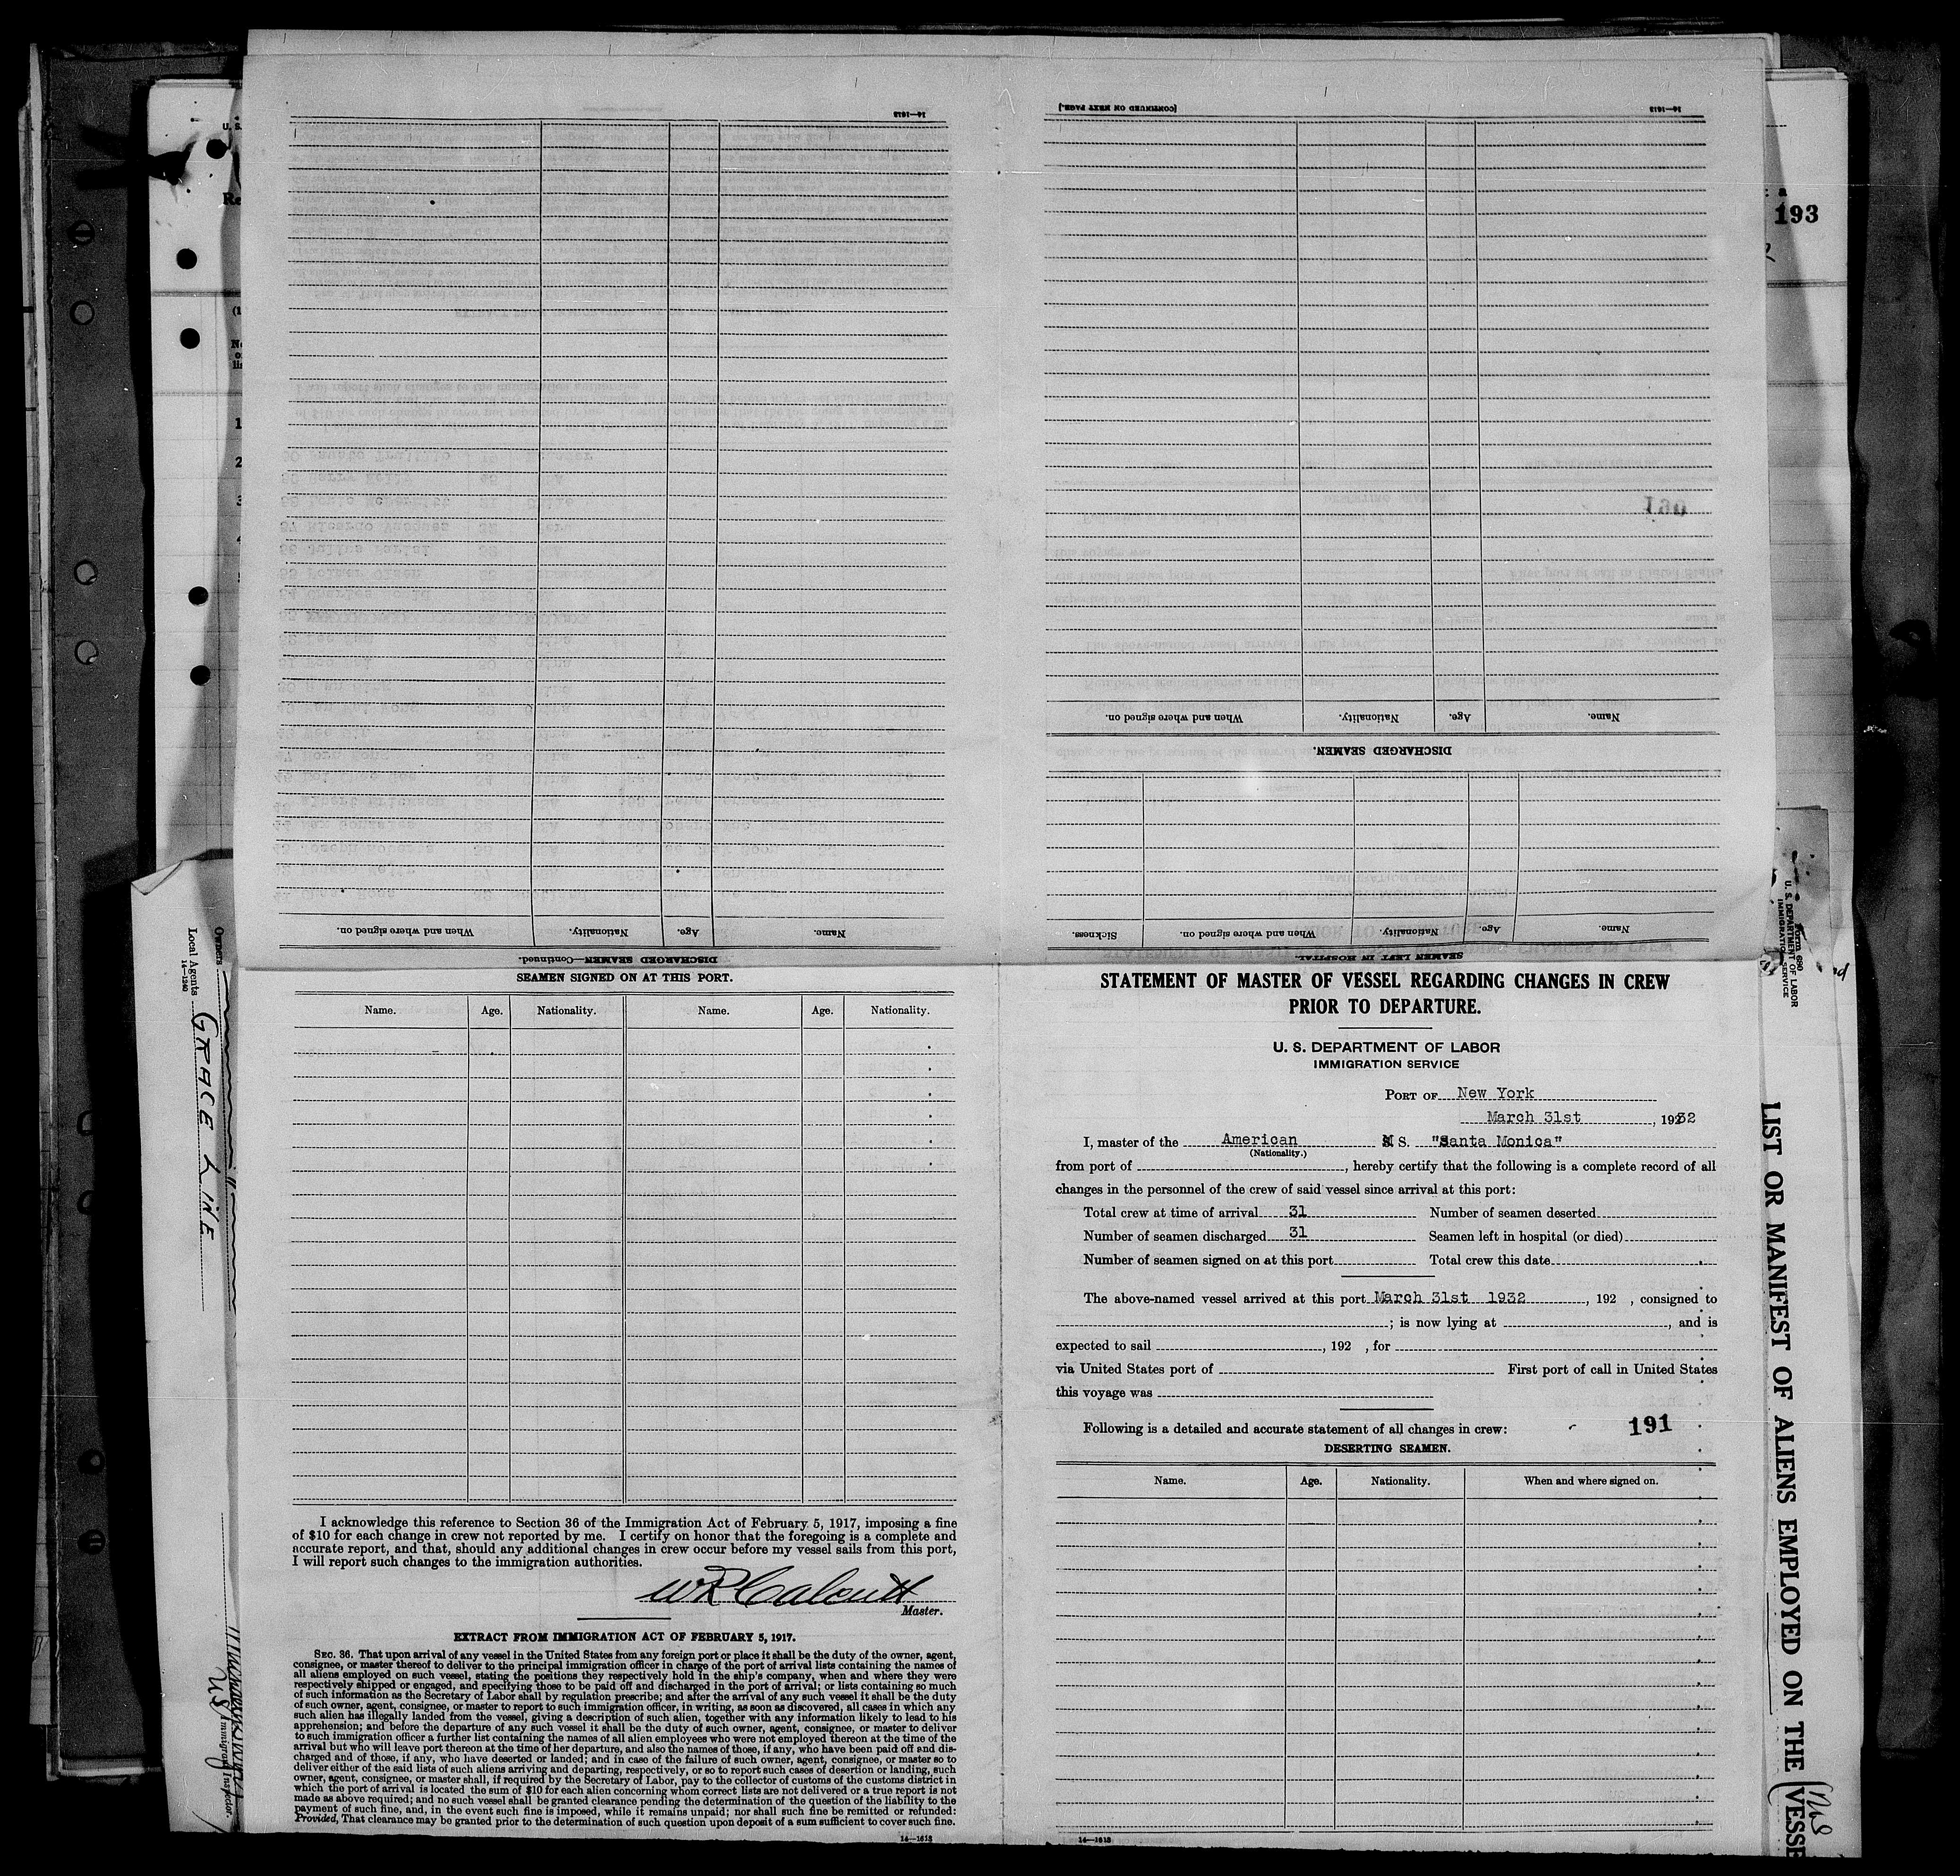 14—1613
[CONTINUED ON NEXT PAGE.]
14—1613
193
061
Name.
Age.
Nationality.
When and where signed on.
DISCHARGED SEAMEN.
Name.
Age.
Nationality.
When and where signed on.
Sickness.
SEAMEN LEFT IN HOSPITAL.
Name.
Age.
Nationality.
When and where signed on.
DISCHARGED SEAMEN—Continued.
SEAMEN SIGNED ON AT THIS PORT.
Name. Age. Nationality. Name. Age. Nationality.
I acknowledge this reference to Section 36 of the Immigration Act of February 5, 1917, imposing a fine
of $10 for each change in crew not reported by me. I certify on honor that the foregoing is a complete and
accurate report, and that, should any additional changes in crew occur before my vessel sails from this port,
I will report such changes to the immigration authorities.
W R Calcutt
Master.
EXTRACT FROM IMMIGRATION ACT OF FEBRUARY 5, 1917.
SEC. 36. That upon arrival of any vessel in the United States from any foreign port or place it shall be the duty of the owner, agent,
consignee, or master thereof to deliver to the principal immigration officer in charge of the port of arrival lists containing the names of
all aliens employed on such vessel, stating the positions they respectively hold in the ship's company, when and where they were
respectively shipped or engaged, and specifying those to be paid off and discharged in the port of arrival; or lists containing so much
of such information as the Secretary of Labor shall by regulation prescribe; and after the arrival of any such vessel it shall be the duty
of such owner, agent, consignee, or master to report to such immigration officer, in writing, as soon as discovered, all cases in which any
such alien has illegally landed from the vessel, giving a description of such alien, together with any information likely to lead to his
apprehension; and before the departure of any such vessel it shall be the duty of such owner, agent, consignee, or master to deliver
to such immigration officer a further list containing the names of all alien employees who were not employed thereon at the time of the
arrival but who will leave port thereon at the time of her departure, and also the names of those, if any, who have been paid off and dis-
charged and of those, if any, who have deserted or landed; and in case of the failure of such owner, agent, consignee, or master so to
deliver either of the said lists of such aliens arriving and departing, respectively, or so to report such cases of desertion or landing, such
owner, agent, consignee, or master shall, if required by the Secretary of Labor, pay to the collector of customs of the customs district in
which the port of arrival is located the sum of $10 for each alien concerning whom correct lists are not delivered or a true report is not
made as above required; and no such vessel shall be granted clearance pending the determination of the question of the liability to the
payment of such fine, and, in the event such fine is imposed, while it remains unpaid; nor shall such fine be remitted or refunded:
Provided, That clearance may be granted prior to the determination of such question upon deposit of a sum sufficient to cover such fine.
14—1613
STATEMENT OF MASTER OF VESSEL REGARDING CHANGES IN CREW
PRIOR TO DEPARTURE.
U. S. DEPARTMENT OF LABOR
IMMIGRATION SERVICE
PORT OF New York
March 31st, 1932
I, master of the American M S. "Santa Monica"
(Nationality.)
from port of , hereby certify that the following is a complete record of all
changes in the personnel of the crew of said vessel since arrival at this port:
Total crew at time of arrival 31 Number of seamen deserted
Number of seamen discharged 31 Seamen left in hospital (or died)
Number of seamen signed on at this port Total crew this date
The above-named vessel arrived at this port March 31st 1932, 192 , consigned to
; is now lying at , and is
expected to sail , 192 , for
via United States port of First port of call in United States
this voyage was
Following is a detailed and accurate statement of all changes in crew:
191
DESERTING SEAMEN.
Name. Age. Nationality. When and where signed on.
14—1613
Owners
Local Agents GRACE LINE
14—1240
Immigrant Inspector.
Form 680
U. S. DEPARTMENT OF LABOR
IMMIGRATION SERVICE
LIST OR MANIFEST OF ALIENS EMPLOYED ON THE VESSE